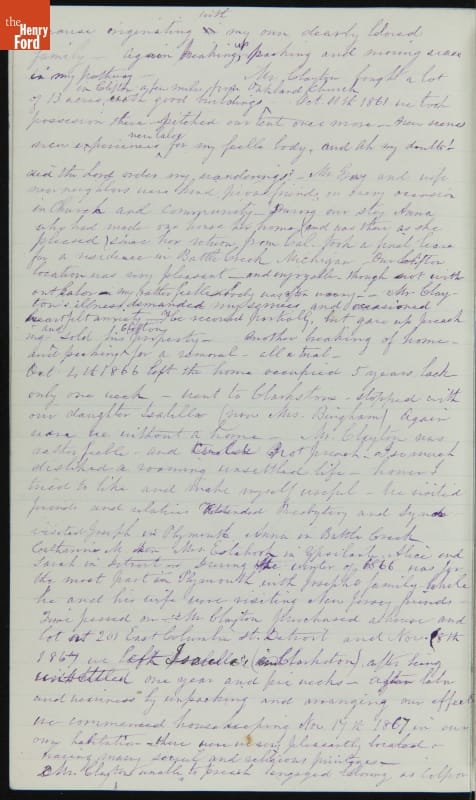 the
Henry
Ford
with
originating my own dearly loved
family - Again breaking up packing and moving
in my pathway - Mr. Clayton bought a lot
in Clifton a few miles from Oakland Church
of 13 acres, with good buildings Oct 11th 1861 we took
possession there - pitched our tent once more - New scenes
new cares
new experiences for my feeble body, and Ah my doubts!
did the Lord order my wanderings? - Mr and wife
near neighbors were kind pious friends, in every occasion
in Church and community - During our stay Anna
who had made our house her home (and was then as she
pleased) since her return from Cal. took a final leave
for a residence in Battle Creek Michigan - Our Clifton
location was very pleasant - and enjoyable though not with
out labor - my rather feeble body was often weary - Mr. Clay
ton's illness demanded my services and occasioned
anxiety - He recovered partially, but gave up preach
ing - and sold his Clifton property - Another breaking of home -
and packing for a removal - all a trial -
Oct 4th 1866 left the home occupied 5 years lack
only one week - went to Clarkston - stopped with
our daughter Isabella (now Mrs. Bingham) Again
were we without a home - Mr. Clayton was
rather feeble - and could not preach - I so much
disliked a roaming unsettled life - however
tried to like and make myself useful - We visited
friends and relatives Attended Presbytery and Synod
visited Joseph in Plymouth Anna in Battle Creek
Catharine M. then Mrs. in Ypsilanti, Alice and
Sarah in Detroit - During the winter of 1866 was for
the most part in Plymouth with Joseph's family while
he and his wife were visiting New Jersey friends -
Time passed on - Mr Clayton purchased a house and
lot at 201 East Columbia St. Detroit and Nov 8th
1867 we left Isabella's (in Clarkston), after being
unsettled one year and five weeks - After labor
and weariness by unpacking and arranging our effects
we commenced housekeeping Nov. 19th 1867 in our
own habitation - there we were very pleasantly located -
having many social and religious privileges -
Mr. Clayton unable to preach engaged as Colpor